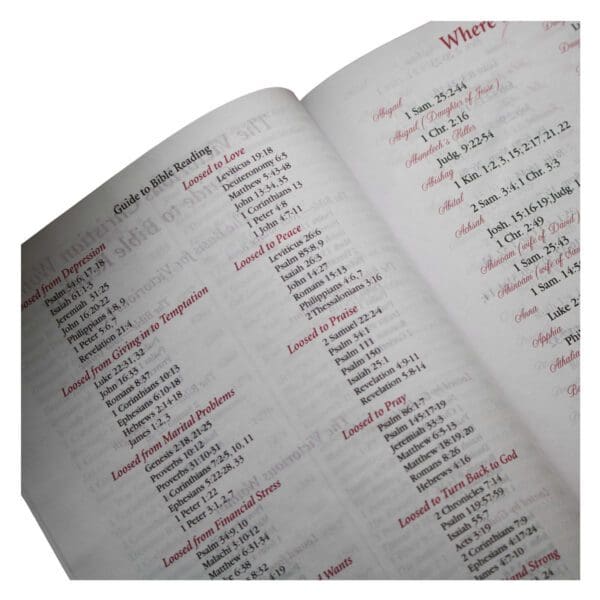 Guide to Bible Reading
Loosed from Depression
Psalm 34:6, 17-18
Isaiah 61:1-3
Jeremiah 31:25
John 16:20-22
Philippians 4:8, 9
1 Peter 5:6, 7
Revelation 21:4
Loosed from Giving in to Temptation
Luke 22:31, 32
John 16:33
Romans 8:37
1 Corinthians 10:13
Ephesians 6:10-18
Hebrews 2:14-18
James 1:2, 3
Loosed from Marital Problems
Genesis 2:18, 21-25
Proverbs 10:12
Proverbs 31:10-31
1 Corinthians 7:2-5, 10, 11
Ephesians 5:22-28, 33
1 Peter 1:22
1 Peter 3:1, 2, 7
Loosed from Financial Stress
Psalm 34:9, 10
Malachi 3:10-12
Matthew 6:31-34
Luke 6:38
Loosed to Love
Leviticus 19:18
Deuteronomy 6:5
Matthew 5:43-48
John 13:34, 35
1 Corinthians 13
1 Peter 4:8
1 John 4:7-11
Loosed to Peace
Leviticus 26:6
Psalm 85:8, 9
Isaiah 26:3
John 14:27
Romans 15:13
Philippians 4:6, 7
2 Thessalonians 3:16
Loosed to Praise
2 Samuel 22:24
Psalm 34:1
Psalm 111
Psalm 150
Isaiah 25:1
Revelation 4:9-11
Revelation 5:8-14
Loosed to Pray
Psalm 86:1-7
Psalm 145:17-19
Jeremiah 33:3
Matthew 6:5-13
Matthew 18:19, 20
Romans 8:26
Hebrews 4:16
Loosed to Turn Back to God
2 Chronicles 7:14
Psalm 119:57-59
Isaiah 55:7
Acts 3:19
2 Corinthians 7:9
Ephesians 4:17-24
James 4:7-10
and Strong
Where
Abigail
1 Sam. 25:2-44
Abigail (Daughter of Jesse)
1 Chr. 2:16
Abimelech's Killer
Judg. 9:22-54
Abishag
1 Kin. 1:2, 3, 15; 2:17, 21, 22
Abital
2 Sam. 3:4; 1 Chr. 3:3
Achsah
Josh. 15:16-19; Judg. 1
1 Chr. 2:49
Ahinoam (wife of David)
1 Sam. 25:43
Ahinoam (wife of Saul
1 Sam. 14:50
Anna
Luke 2
Apphia
Athalia